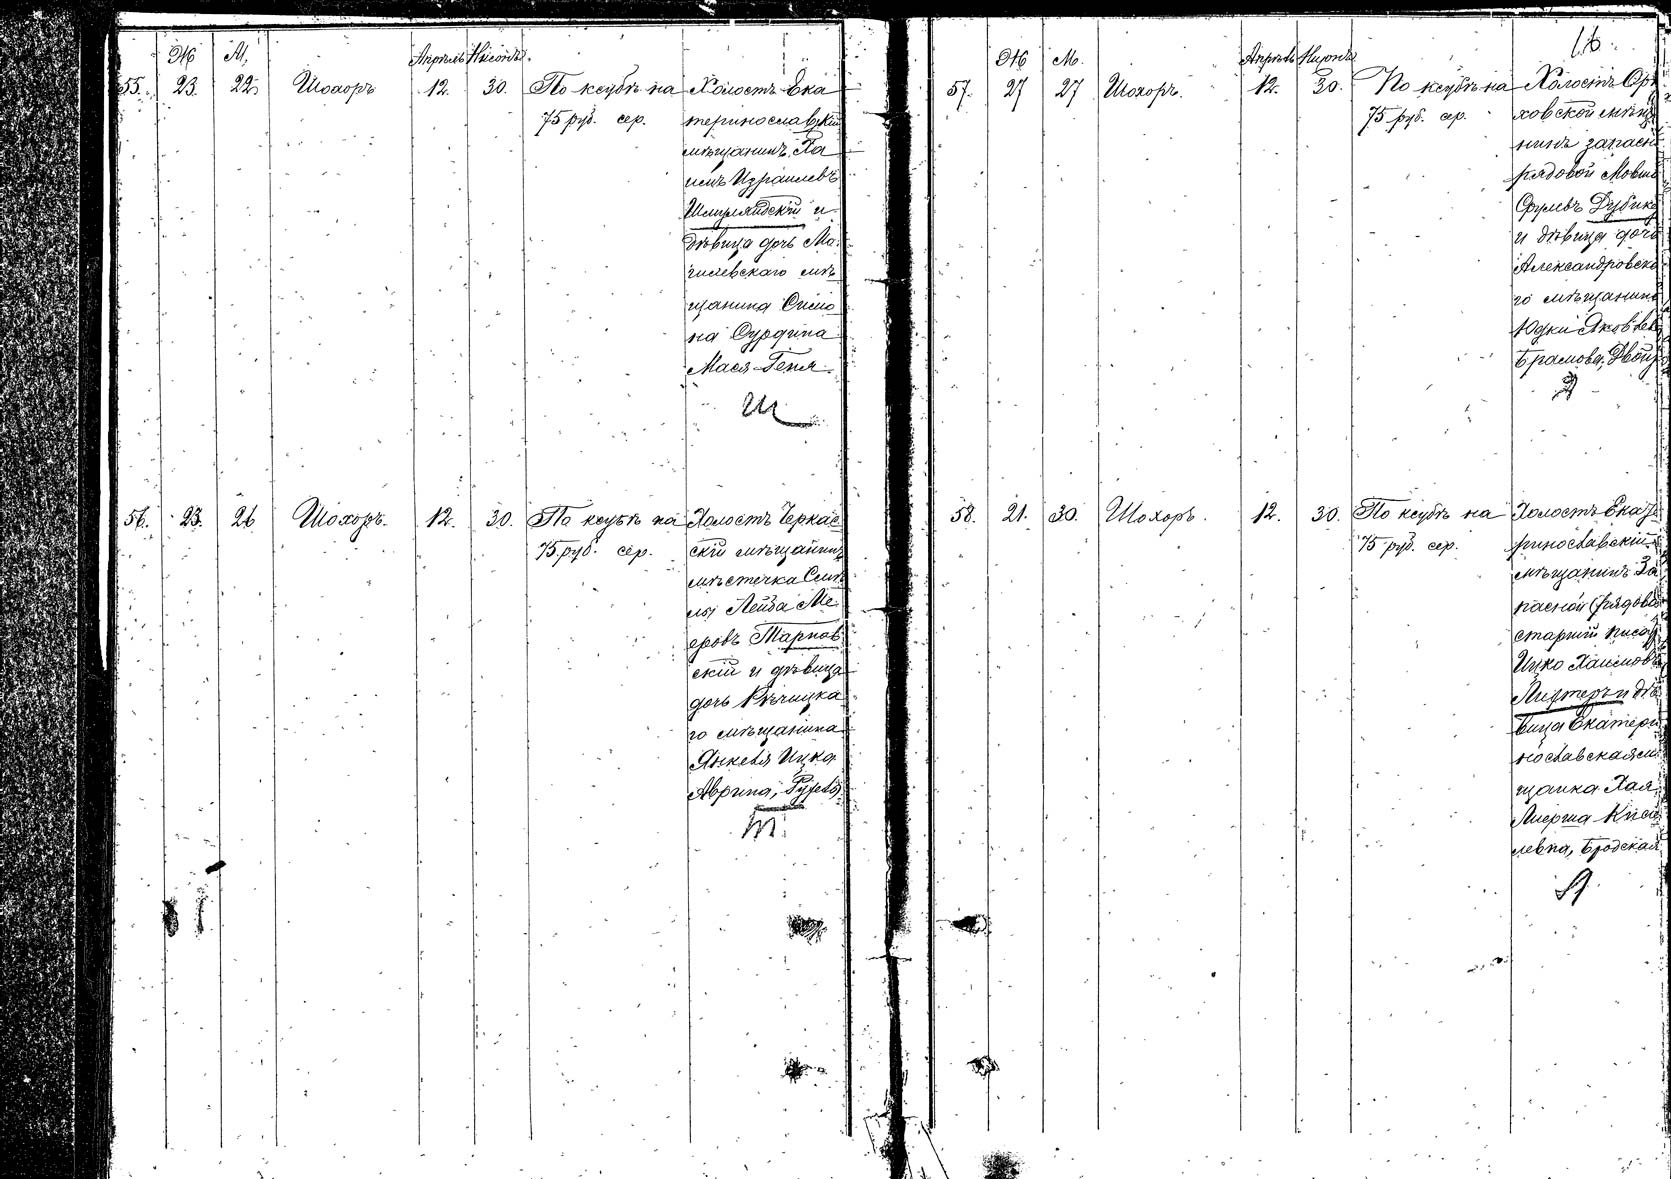 Ж М. Апрель Нисонъ.
55. 23. 22 Шохоръ 12. 30. По ксубѣ на Холостъ Ека
75 руб. сер. теринославскій
мѣщанинъ Ха
имъ Израилевъ
и
дѣвица дочь Мо
гилевскаго мѣ
щанина Симо
на Сурдина
Мася-Геня
Ш
56. 23. 26 Шохоръ. 12. 30. По ксубѣ на Холостъ Черкас
75 руб. сер. скій мѣщанинъ
мѣстечка Смѣ
лы Лейба Ме
еровъ Тарнов
скій и дѣвица
дочь Рѣчицка
го мѣщанина
Янкеля Ицка
Аврина,
Т
16.
Ж М. Апрель Нисонъ
57. 27 27 Шохоръ. 12. 30. По ксубѣ на Холостъ Орѣ
75 руб. сер. ховской мѣща
нинъ запасн
рядовой Мовша
Срулевъ Дубин
и дѣвица дочь
Александровска
го мѣщанина
Юдки Яковлева
Брамова, Двойр
Д
58. 21. 30. Шохоръ. 12. 30. По ксубѣ на Холостъ Екате
75 руб. сер. ринославскій
мѣщанинъ За
пасной рядовой
старшій писарь
Ицко Хаимовъ
и дѣ
вица Екатери
нославская мѣ
щанка Хая
Киси
левна, Бродская
Л